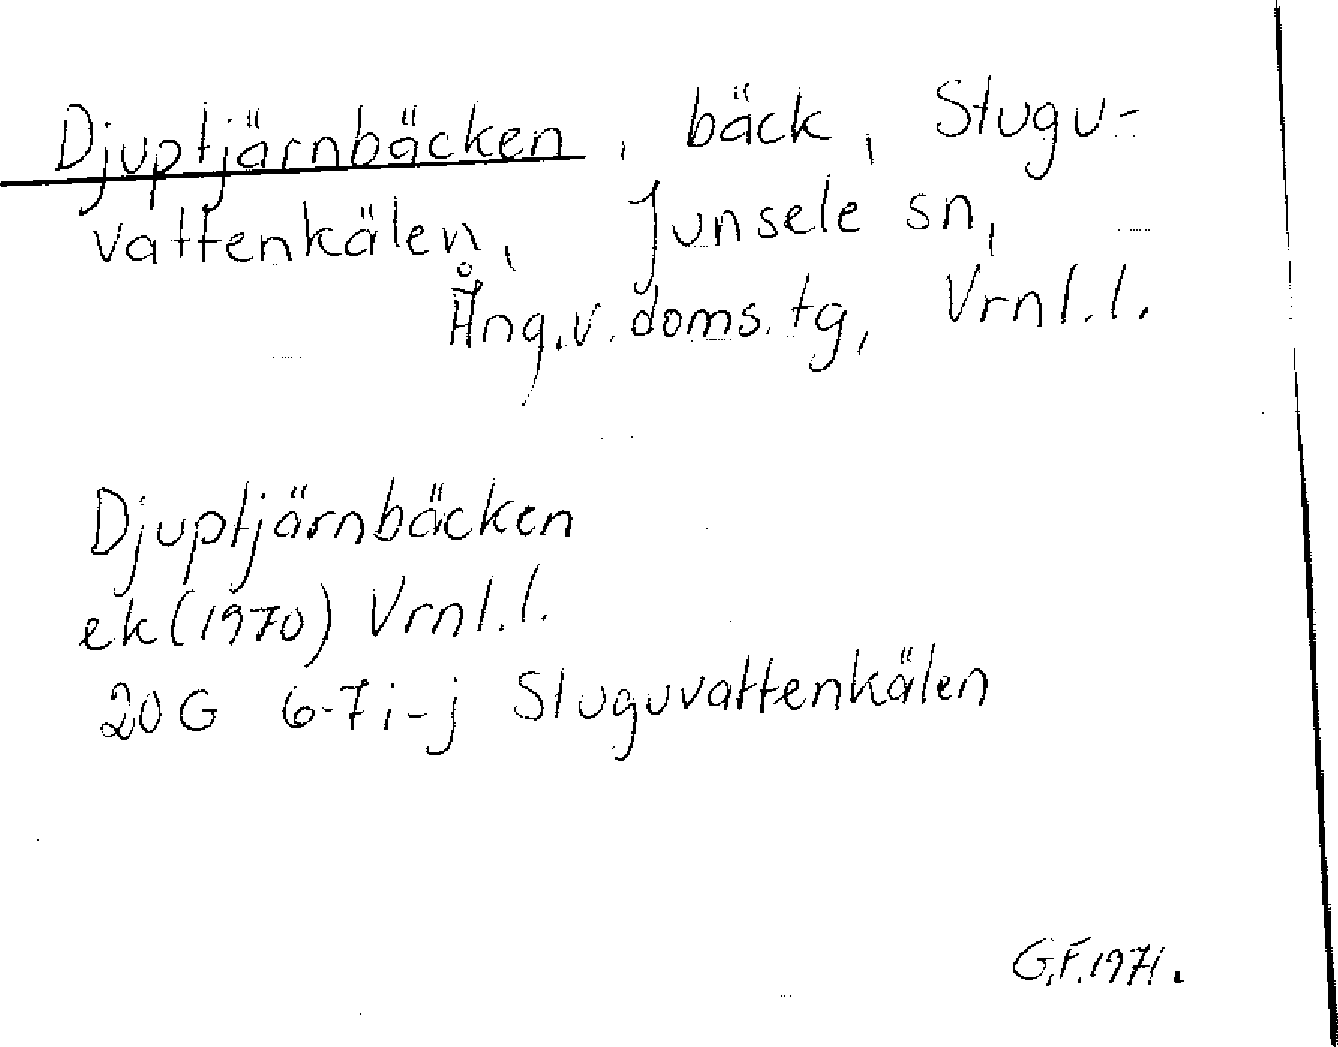 Djuptjärnbäcken, bäck, Stugu-
vattenkälen, Junsele sn,
Ång.v. doms. tg, Vrnl.l.
Djuptjärnbäcken
ek (1970) Vrnl.l.
20 G 6-7 i-j Stuguvattenkälen
G.F. 1971.